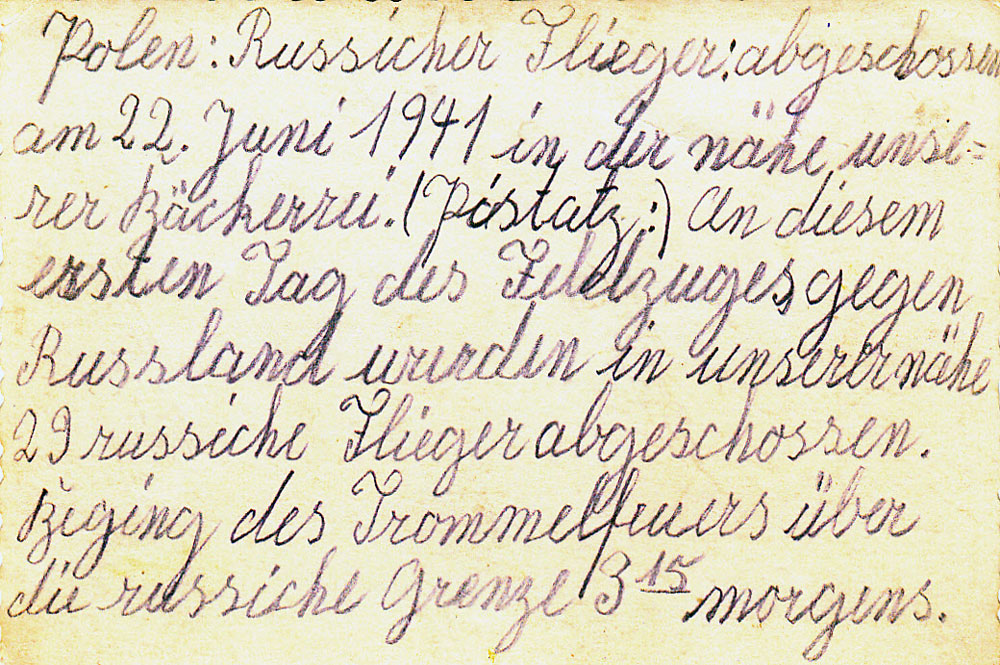 Polen: Russicher Flieger: abgeschossen
am 22. Juni 1941 in der nähe unse=
rer Bäckerrei. (Póstatz:) An diesem
ersten Tag des Feldzuges gegen
Russland wurden in unserer nähe
29 russiche Flieger abgeschossen.
Beging des Trommelfeuers über
die russiche Grenze 3 15 morgens.